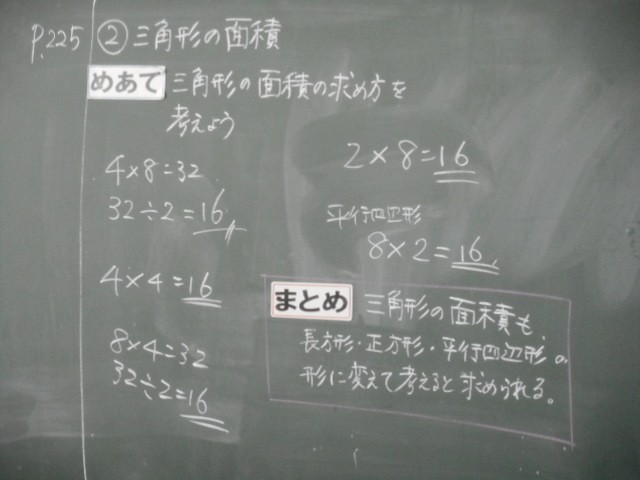 P.225 ②三角形の面積
めあて 三角形の面積の求め方を
考えよう
4×8=32
32÷2=16
4×4=16
8×4=32
32÷2=16
2×8=16
平行四辺形
8×2=16
まとめ 三角形の面積も、
長方形・正方形・平行四辺形の
形に変えて考えると求められる。